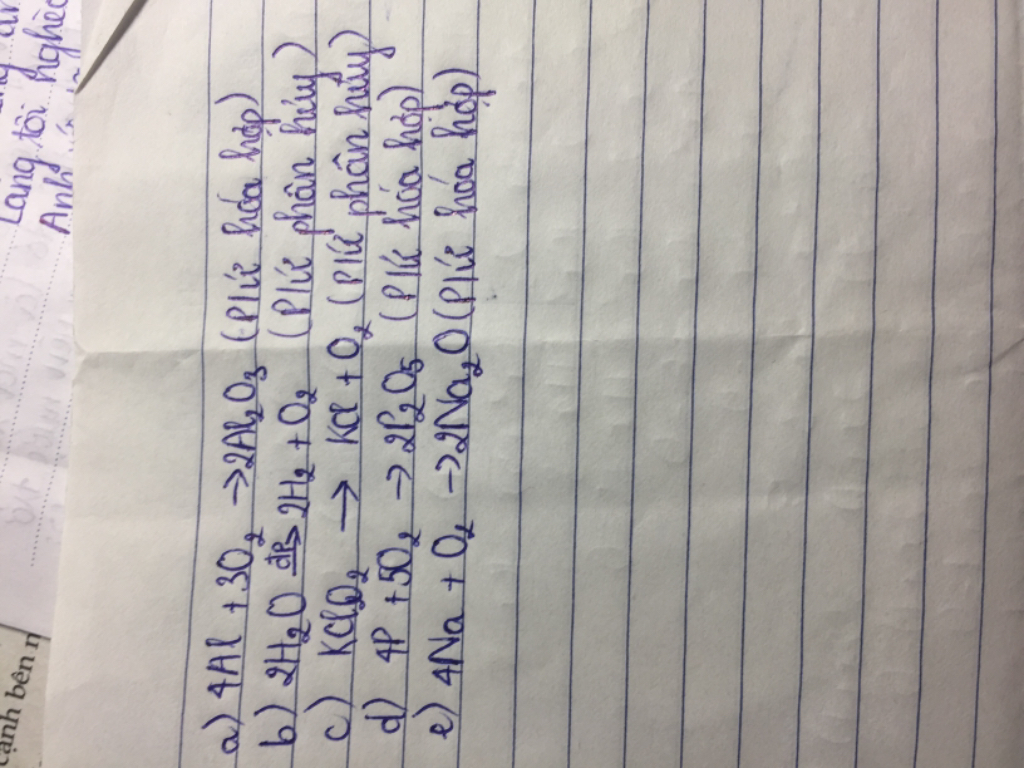 a) 4Al + 3O₂ → 2Al₂O₃ (PỨ hóa hợp)
b) 2H₂O đp→ 2H₂ + O₂ (PỨ phân hủy)
c) KClO₂ → KCl + O₂ (PỨ phân hủy)
d) 4P + 5O₂ → 2P₂O₅ (PỨ hóa hợp)
e) 4Na + O₂ → 2Na₂O (PỨ hóa hợp)
Làng tôi nghèo
Anh
cạnh bên n